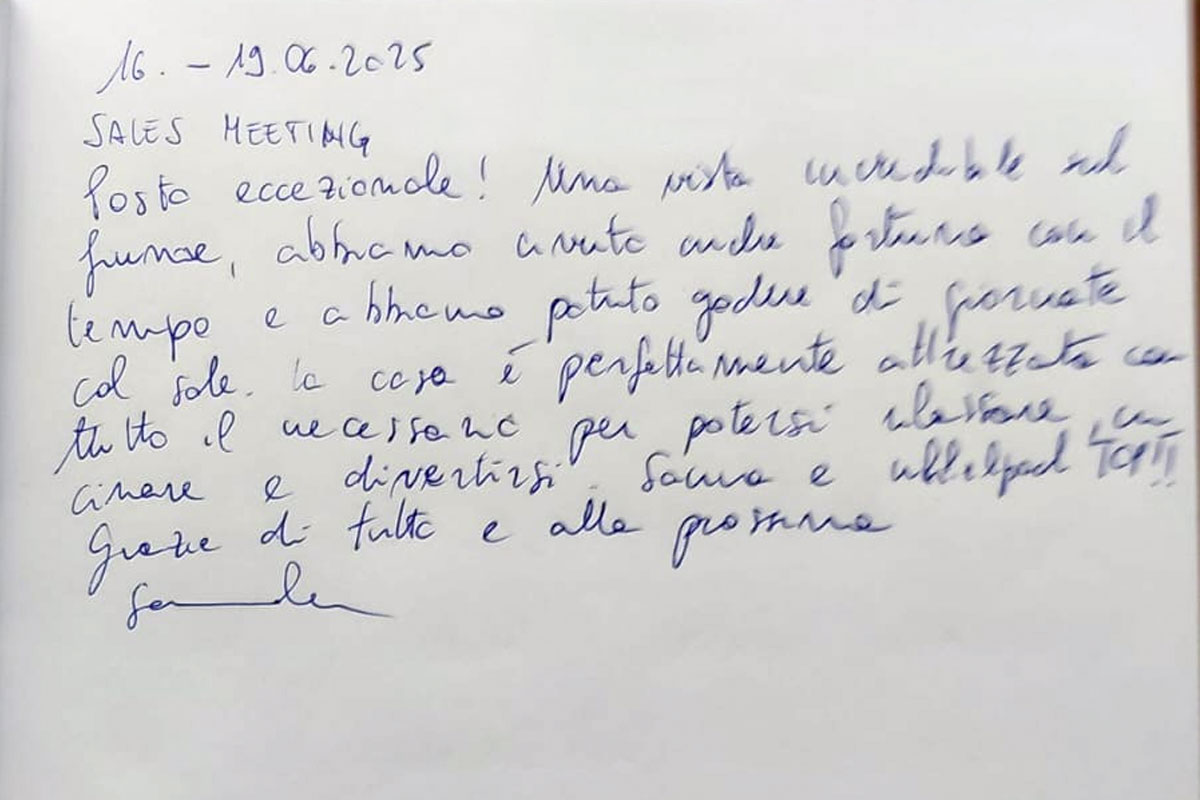 16. - 19.06.2025
SALES MEETING
Posto eccezionale! Una vista incredibile sul
fiume, abbiamo avuto anche fortuna con il
tempo e abbiamo potuto godere di giornate
col sole. la casa è perfettamente attrezzata con
tutto il necessario per potersi rilassare, cu
cinare e divertirsi. Sauna e whirlpool TOP!!
Grazie di tutto e alla prossima